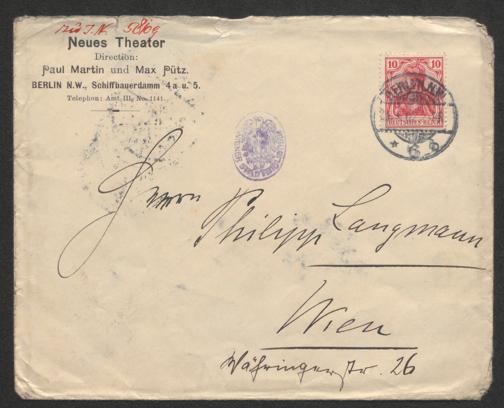 zu J. N. 58109
Neues Theater
Direction:
Paul Martin und Max Pütz.
BERLIN N.W., Schiffbauerdamm 4a u. 5.
Telephon: Amt III, No. 1141.
10 10
DEUTSCHES REICH
BERLIN N.W.
* 6 *
Herrn
Philipp Langmann
Wien
Währingerstr. 26